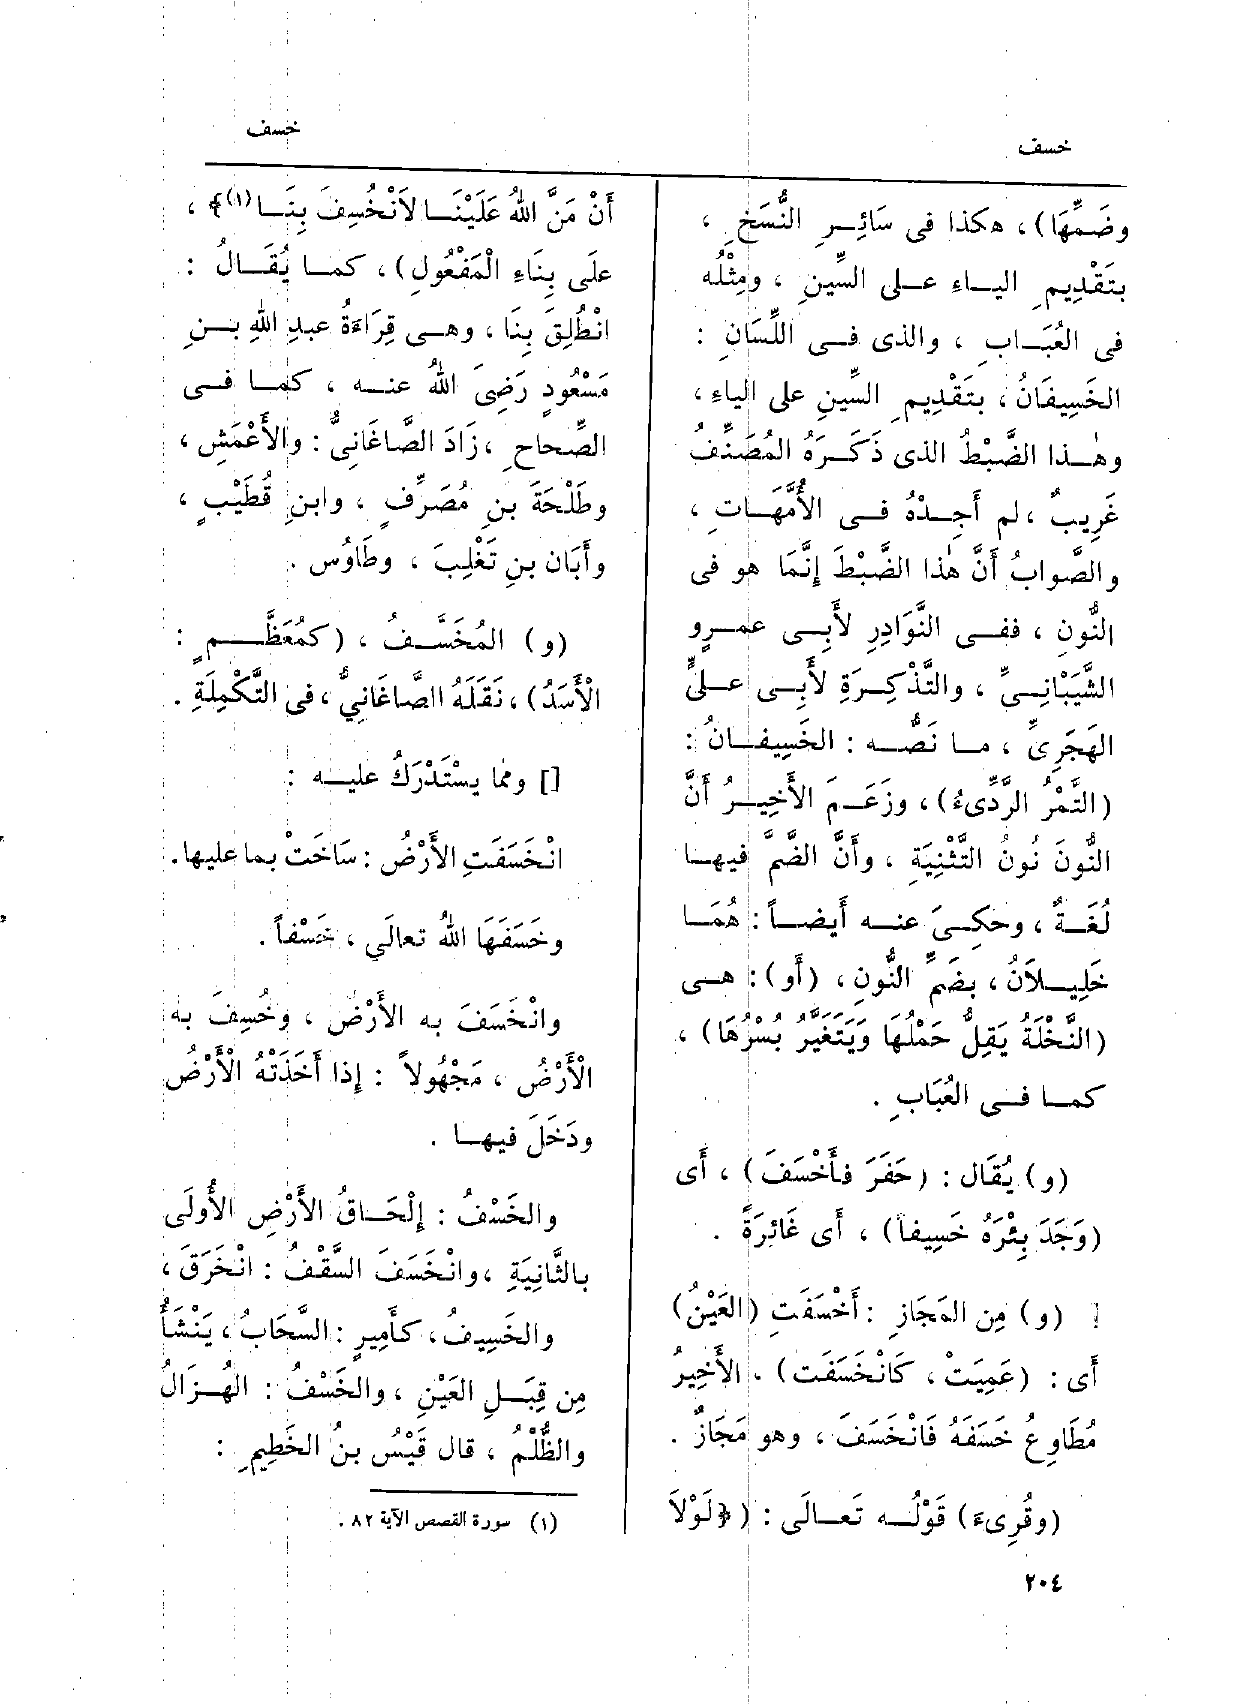 خسف
خسف
وضَمِّهَا) ، هكذا فى سَائِرِ النُّسَخِ ،
بتَقْدِيمِ الياءِ على السِّينِ ، ومِثْلُه
فى العُبَابِ ، والذى فى اللِّسَانِ :
الخَسِيفَانُ ، بتَقْدِيمِ السِّينِ على الياءِ ،
وهٰذا الضَّبْطُ الذى ذَكَرَهُ المُصَنِّفُ
غَرِيبٌ ، لم أَجِدْهُ فى الأُمَّهَاتِ ،
والصَّوابُ أَنَّ هٰذا الضَّبْطَ إِنَّمَا هو فى
النُّونِ ، ففى النَّوَادِرِ لأَبِى عمرٍو
الشَّيْبَانِىِّ ، والتَّذْكِرَةِ لأَبِى علىٍّ
الهَجَرِىِّ ، ما نَصُّه : الخَسِيفَانُ :
(التَّمْرُ الرَّدِىءُ) ، وزَعَمَ الأَخِيرُ أَنَّ
النُّونَ نُونُ التَّثْنِيَةِ ، وأَنَّ الضَّمَّ فيها
لُغَةٌ ، وحكِىَ عنه أَيضاً : هُمَا
خَلِيلَانُ ، بضَمِّ النُّونِ ، (أَو) : هى
(النَّخْلَةُ يَقِلُّ حَمْلُهَا وَيَتَغَيَّرُ بُسْرُهَا) ،
كما فى العُبَابِ .
(و) يُقَال : (حَفَرَ فأَخْسَفَ) ، أَى
(وَجَدَ بِئْرَهُ خَسِيفاً) ، أَى غَائِرَةً .
[ (و) مِن المَجَازِ : أَخْسَفَتِ (العَيْنُ)
أَى : (عَمِيَتْ ، كَانْخَسَفَت) ، الأَخِيرُ
مُطَاوِعُ خَسَفَهُ فَانْخَسَفَ ، وهو مَجَازٌ .
(وقُرِىءَ) قَوْلُه تَعالَى : ( ﴿ لَوْلاَ
أَنْ مَنَّ اللهُ عَلَيْنَا لاَنْخُسِفَ بِنَا(١)﴾ ،
علَى بِنَاءِ الْمَفْعُولِ) ، كما يُقَالُ :
انْطُلِقَ بِنَا ، وهى قِرَاءَةُ عبدِ اللهِ بنِ
مَسْعُودٍ رَضِىَ اللهُ عنه ، كما فى
الصِّحاحِ ، زَادَ الصَّاغَانِىُّ : والأَعْمَشِ ،
وطَلْحَةَ بنِ مُصَرِّفٍ ، وابنِ قُطَيْبٍ ،
وأَبَان بنِ تَغْلِبَ ، وطَاوُس .
(و) المُخَسَّفُ ، (كمُعَظَّمٍ :
الْأَسَدُ) ، نَقَلَهُ الصَّاغَانِىُّ ، فى التَّكْمِلَةِ .
[] ومّما يسْتَدْرَكُ عليه :
انْخَسَفَتِ الأَرْضُ : سَاخَتْ بما عليها .
وخَسَفَهَا اللهُ تعالَى ، خَسْفاً .
وانْخَسَفَ به الأَرْضُ ، وخُسِفَ به
الْأَرْضُ ، مَجْهُولاً : إذا أَخَذَتْهُ الْأَرْضُ
ودَخَلَ فيها .
والخَسْفُ : إِلْحَاقُ الأَرْضِ الأُولَى
بالثَّانِيَةِ ، وانْخَسَفَ السَّقْفُ : انْخَرَقَ ،
والخَسِيفُ ، كأَمِيرٍ : السَّحَابُ ، يَنْشَأُ
مِن قِبَلِ العَيْنِ ، والخَسْفُ : الهُزَالُ
والظُّلْمُ ، قال قَيْسُ بنُ الخَطِيمِ :
(١) سورة القصص الآية ٨٢ .
٢٠٤